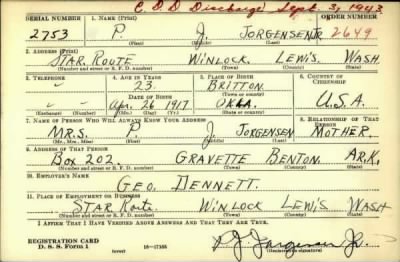 C.D.D Discharge Sept. 3, 1943
SERIAL NUMBER 1. NAME (Print) ORDER NUMBER
2753 P. J. JORGENSEN JR 2649
(First) (Middle) (Last)
2. ADDRESS (Print)
STAR ROUTE WINLOCK LEWIS WASH.
(Number and street or R. F. D. number) (Town) (County) (State)
3. TELEPHONE 4. AGE IN YEARS 5. PLACE OF BIRTH 6. COUNTRY OF CITIZENSHIP
23 BRITTON
DATE OF BIRTH (Town or county)
Apr. 26 1917 OKLA. U.S.A.
(Mo.) (Day) (Yr.) (State or country)
7. NAME OF PERSON WHO WILL ALWAYS KNOW YOUR ADDRESS 8. RELATIONSHIP OF THAT PERSON
MRS. P J JORGENSEN MOTHER.
(Mr., Mrs., Miss) (First) (Middle) (Last)
9. ADDRESS OF THAT PERSON
BOX 202. GRAVETTE BENTON ARK.
(Number and street or R. F. D. number) (Town) (County) (State)
10. EMPLOYER'S NAME
GEO. DENNETT.
11. PLACE OF EMPLOYMENT OR BUSINESS
STAR Route. WINLOCK LEWIS WASH
(Number and street or R. F. D. number) (Town) (County) (State)
I AFFIRM THAT I HAVE VERIFIED ABOVE ANSWERS AND THAT THEY ARE TRUE.
REGISTRATION CARD
D. S. S. Form 1 (over) 16-17105 P. J. Jorgensen Jr.